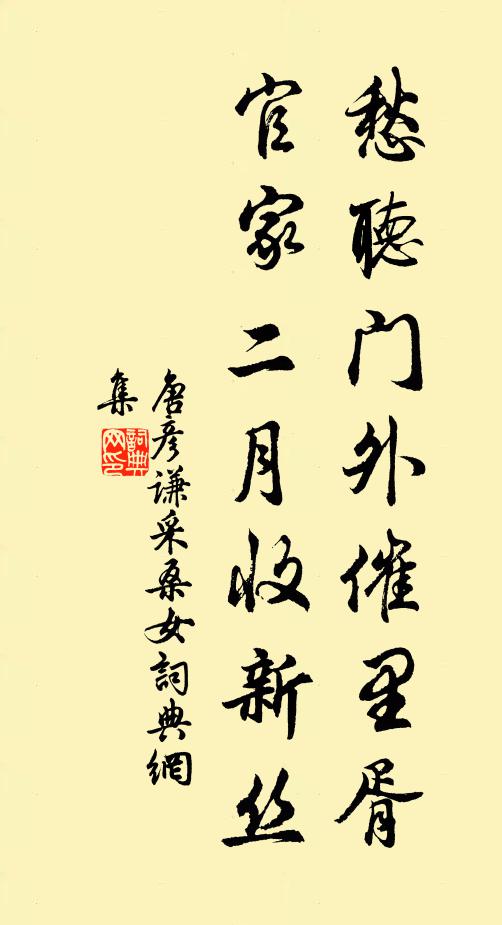 愁聽门外催里胥
官家二月收新丝
唐彦谦采桑女詞典網
集
詞典
网印